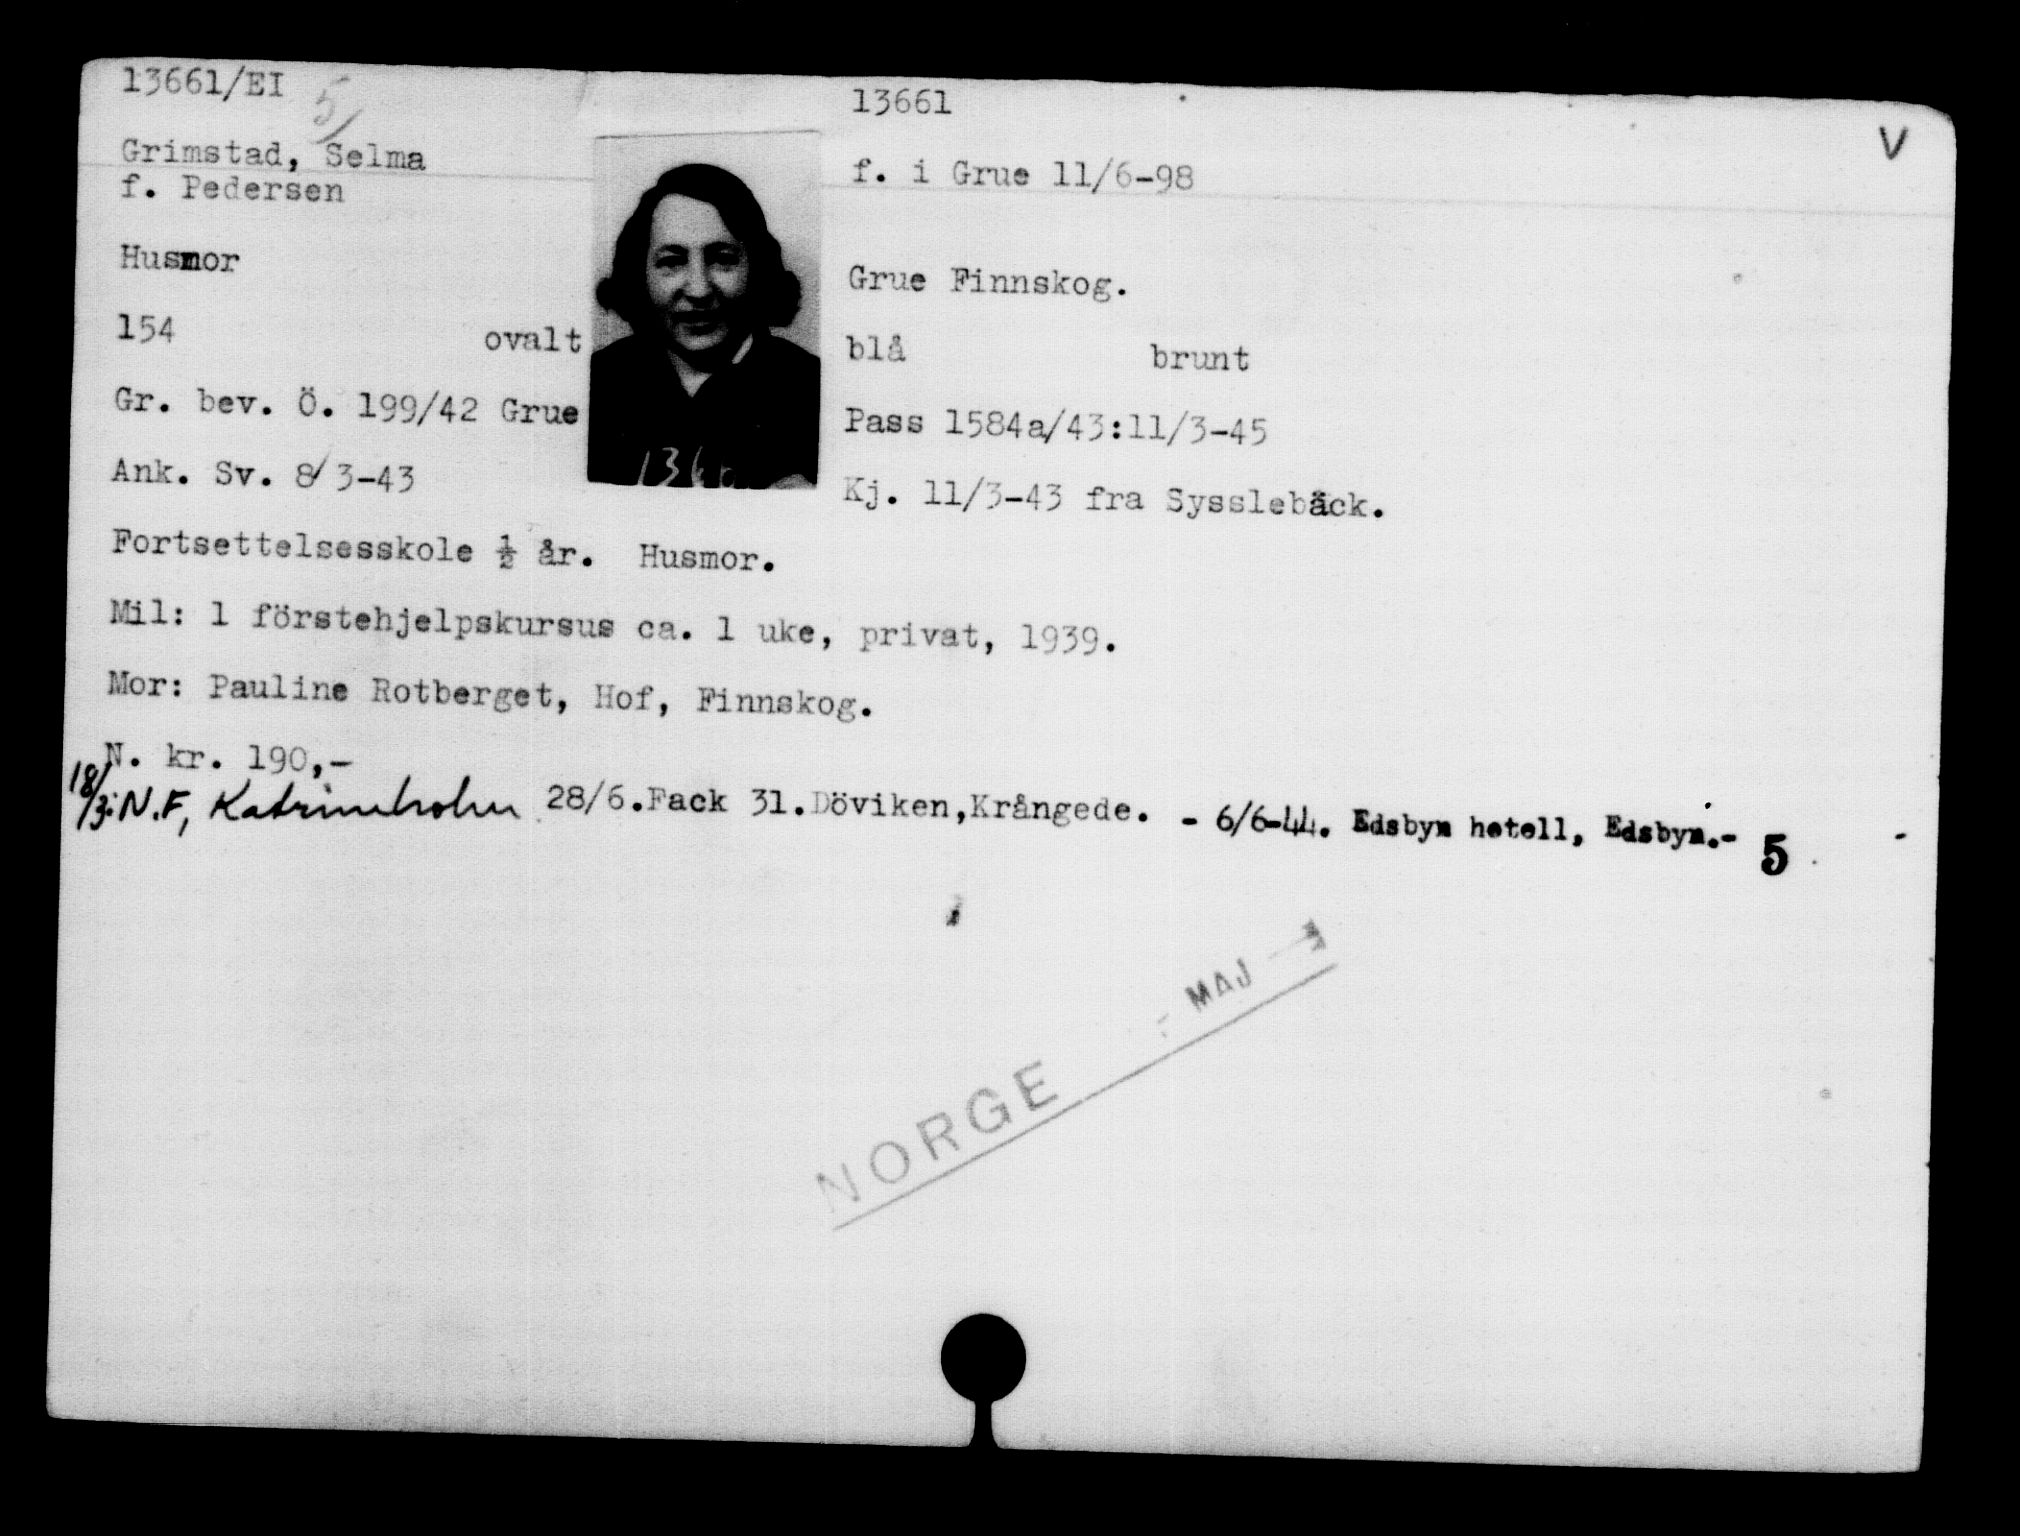 13661/EI
5/
13661
V
Grimstad, Selma
f. Pedersen
f. i Grue 11/6-98
Husmor
Grue Finnskog.
154 ovalt
blå brunt
Gr. bev. Ö. 199/42 Grue
Pass 1584a/43:11/3-45
Ank. Sv. 8/3-43
Kj. 11/3-43 fra Sysslebäck.
Fortsettelsesskole ½ år. Husmor.
Mil: 1 förstehjelpskursus ca. 1 uke, privat, 1939.
Mor: Pauline Rotberget, Hof, Finnskog.
N. kr. 190,-
18/3: N.F, Katrineholm 28/6.Fack 31.Döviken,Krångede. - 6/6-44. Edsbyn hotell, Edsbyn.- 5
MAJ
NORGE